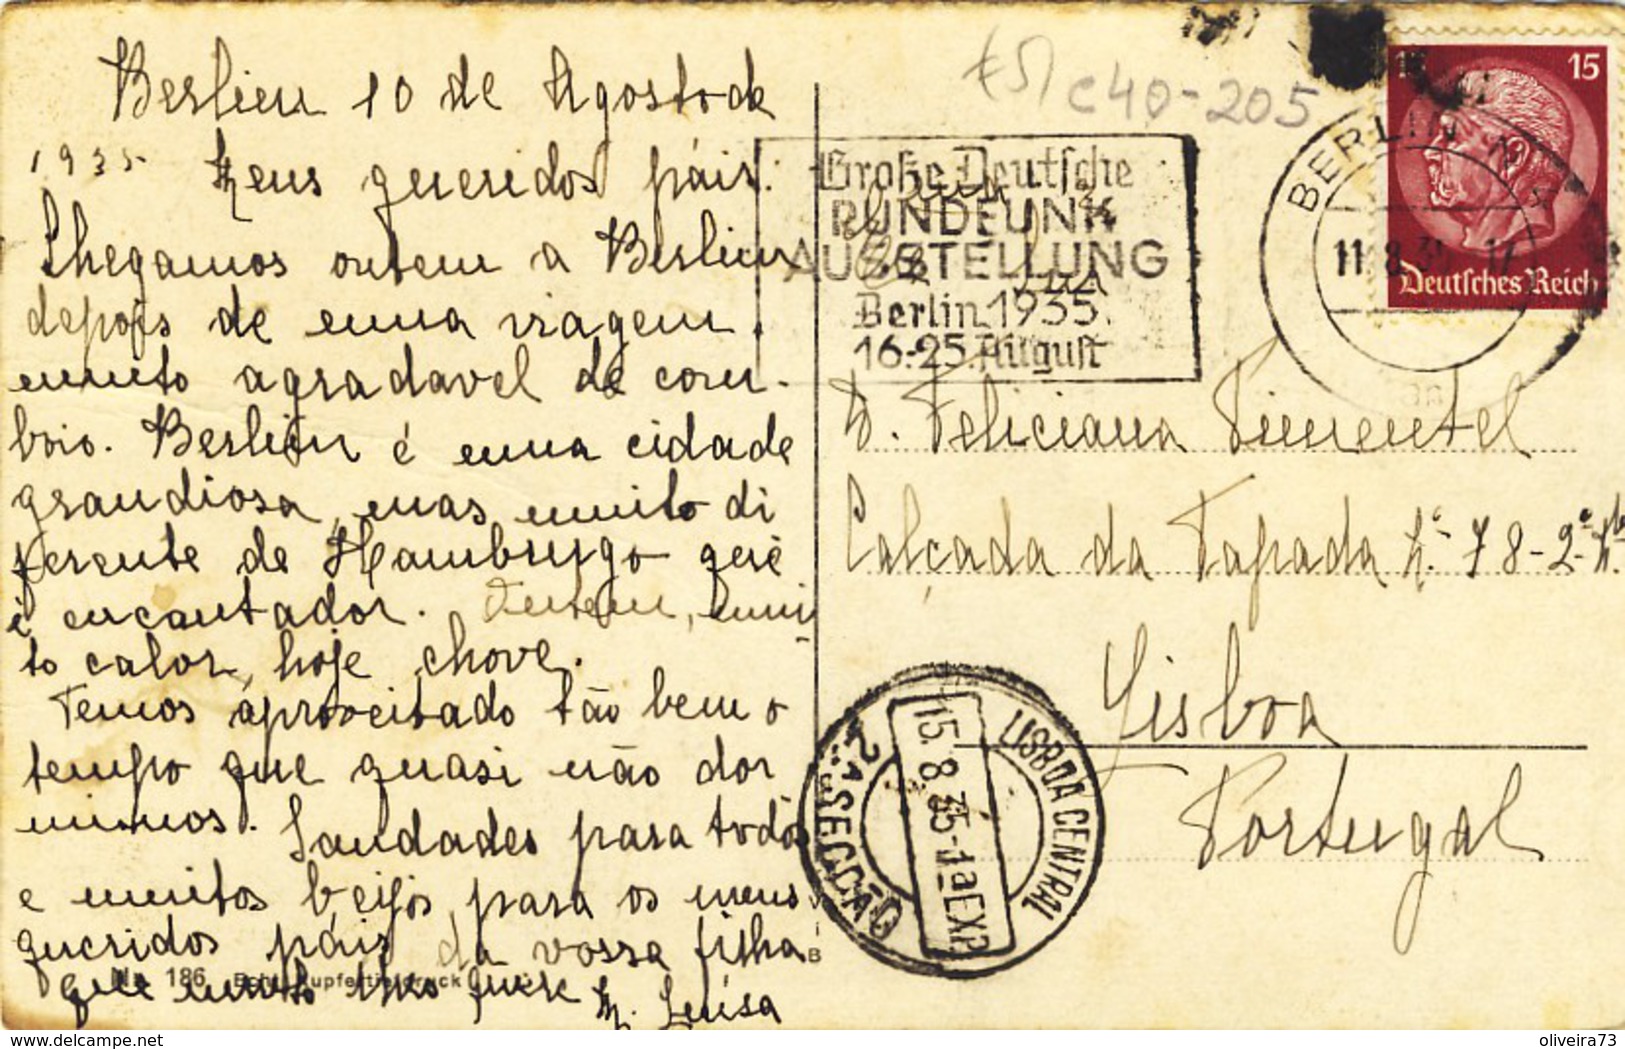 Berlim 10 de Agosto de
1935
Meus queridos páis:
Chegamos ontem a Berlim
depois de uma viagem
muito agradavel de com-
boio. Berlim é uma cidade
grandiosa, mas muito di
ferente de Hamburgo que
é encantador. Ontem, mui
to calor, hoje chove.
Temos aproveitado tão bem o
tempo que quasi não dor
mimos. Saudades para todos
e muitos beijos, para os meus
queridos páis da vossa filha
que muito lhes quere
M. Luísa
No. 186 Echt Kupfertiefdruck
(51 c40-205
Große Deutsche
RUNDFUNK
AUSSTELLUNG
Berlin 1935
16.-25. August
BERLIN N 4
11.8.35. 17
an
15
Deutsches Reich
D. Feliciana Pimentel
Calçada da Tapada N.º 78-2º
Lisboa
Portugal
LISBOA CENTRAL
15.8.35-1aEXP
2ª SECÇÃO
B
delcampe.net
oliveira73